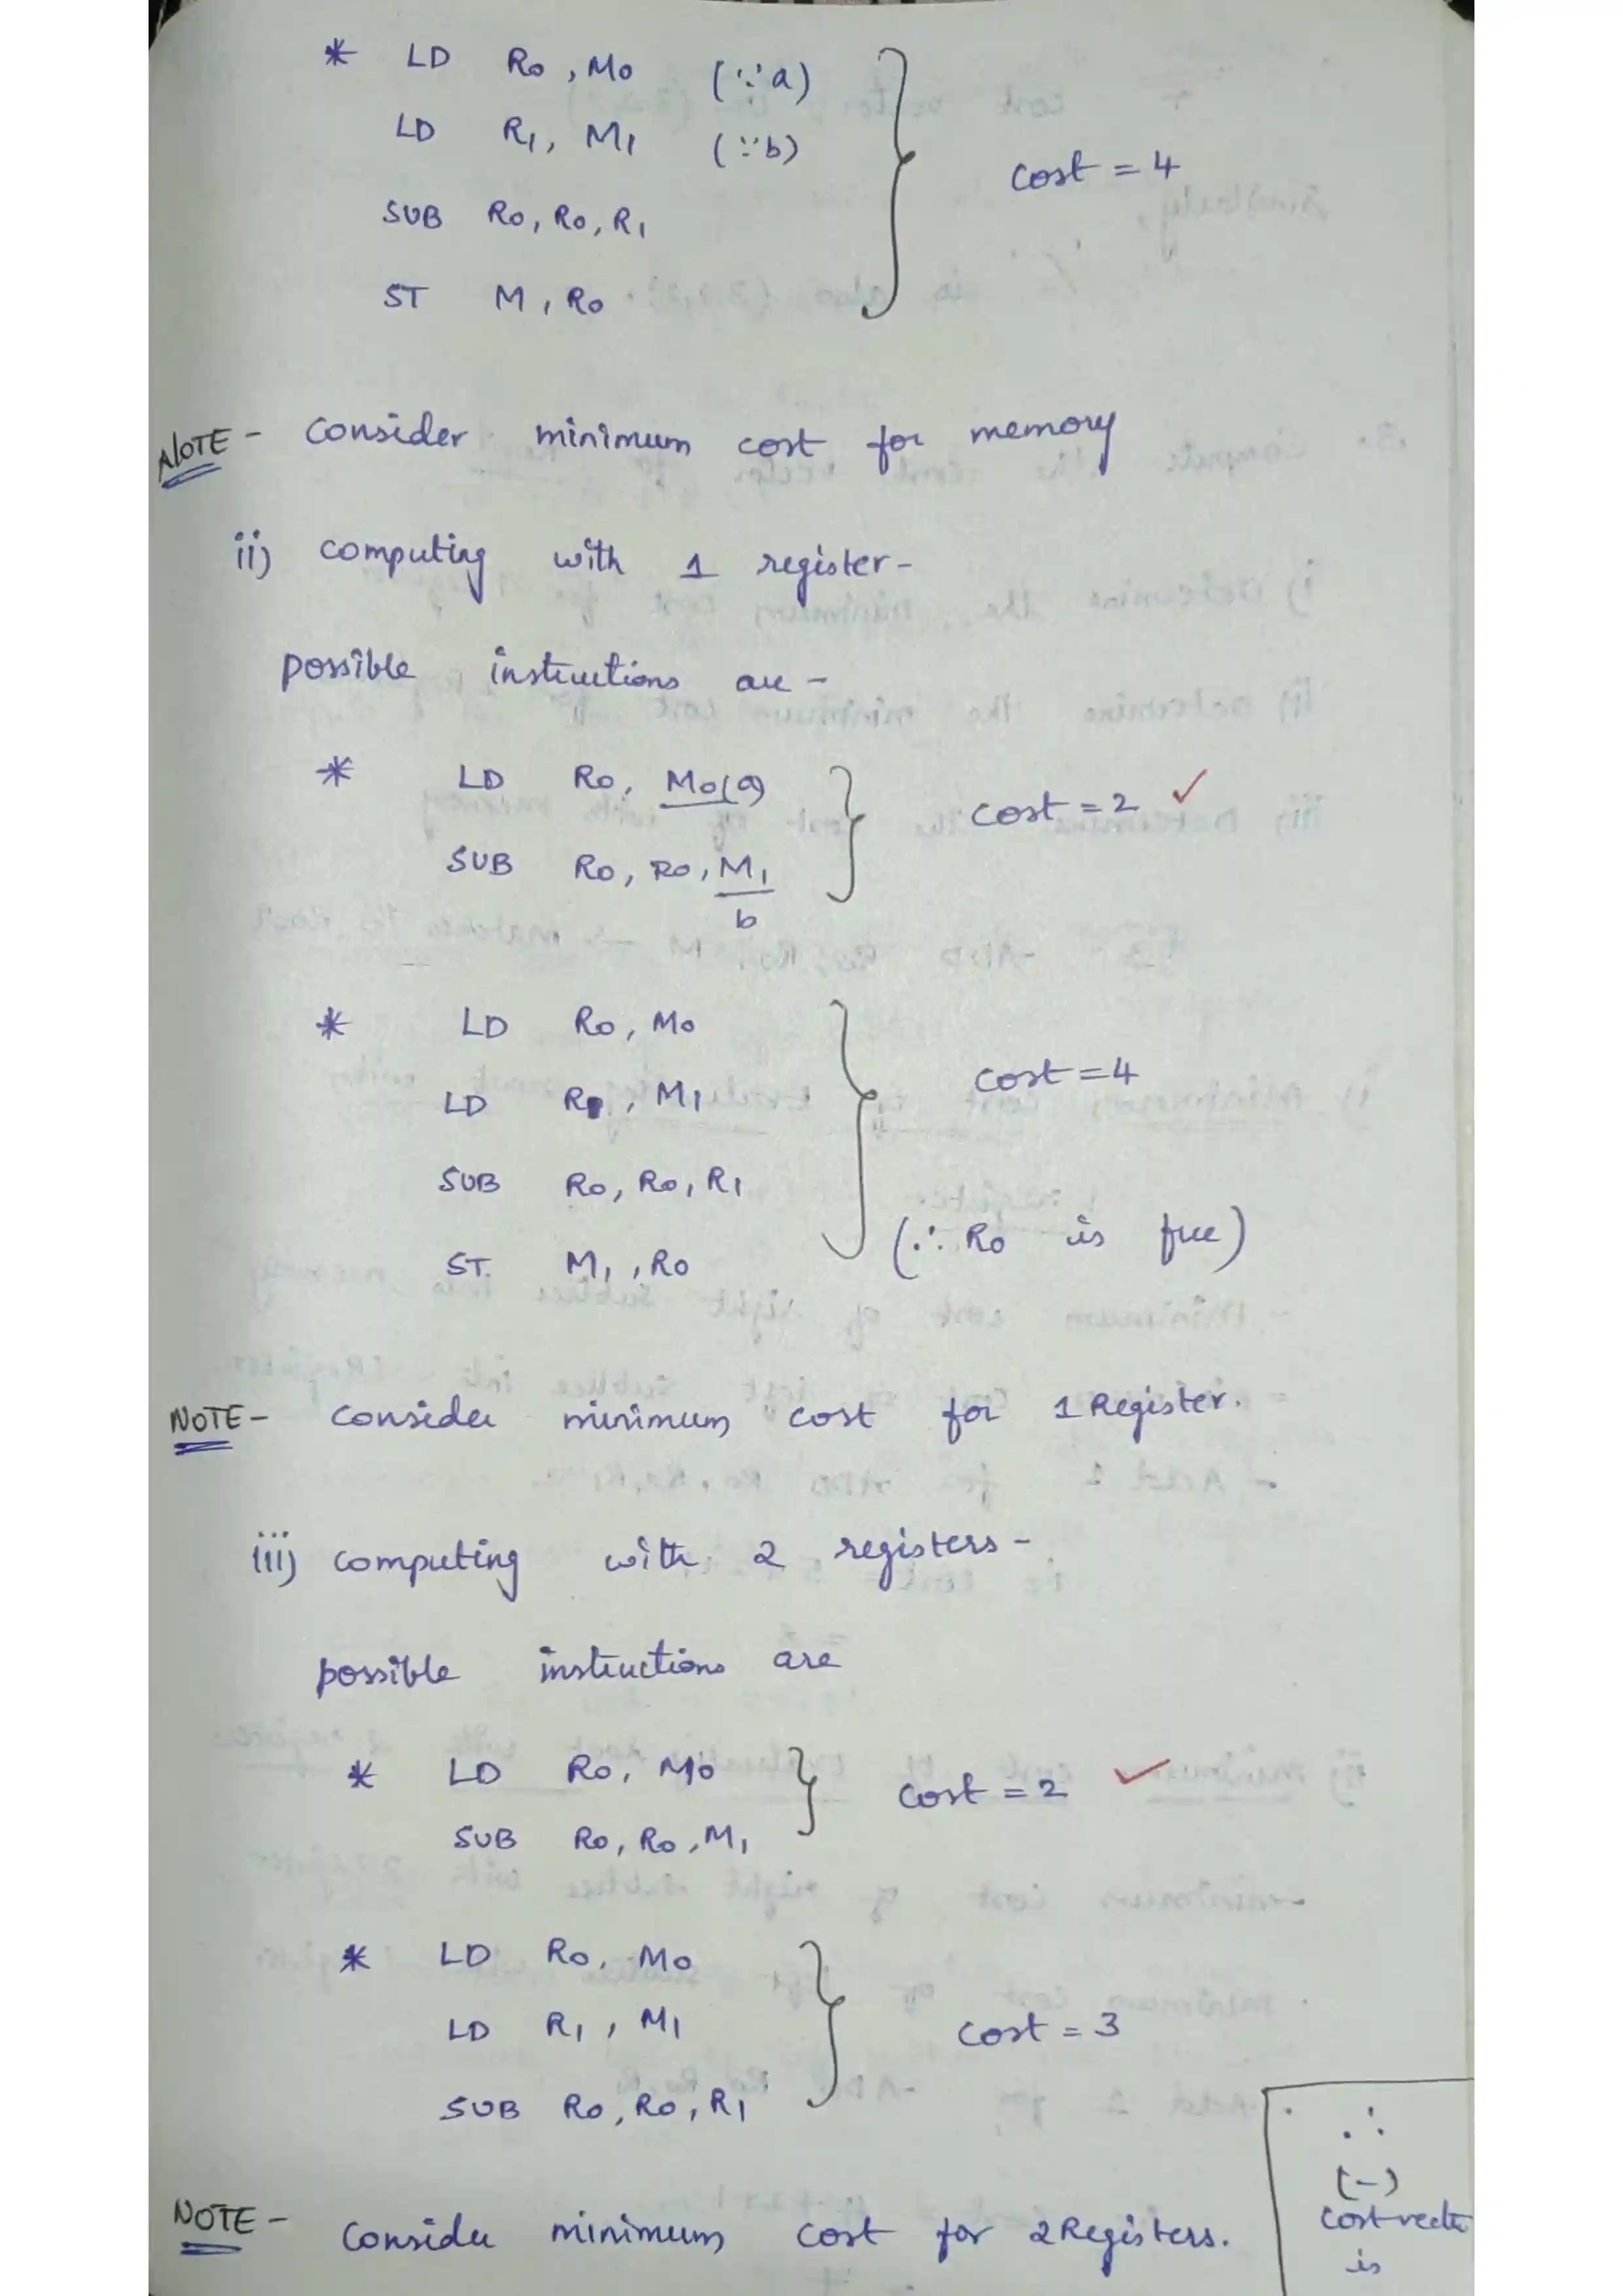 * LD R0, M0 (∵ a)
LD R1, M1 (∵ b)
SUB R0, R0, R1
ST M, R0
cost = 4
NOTE - consider minimum cost for memory
ii) computing with 1 register-
possible instructions are -
* LD R0, M0(a)
SUB R0, R0, M1
b
cost = 2 ✓
* LD R0, M0
LD , M1
SUB R0, R0, R1
ST. M1, R0
cost = 4
(∴ R0 is free)
NOTE - consider minimum cost for 1 Register.
iii) computing with 2 registers -
possible instructions are
* LD R0, M0
SUB R0, R0, M1
cost = 2 ✓
* LD R0, M0
LD R1, M1
SUB R0, R0, R1
cost = 3
NOTE - consider minimum cost for 2 Registers.
∴
(-)
cost vecto
is